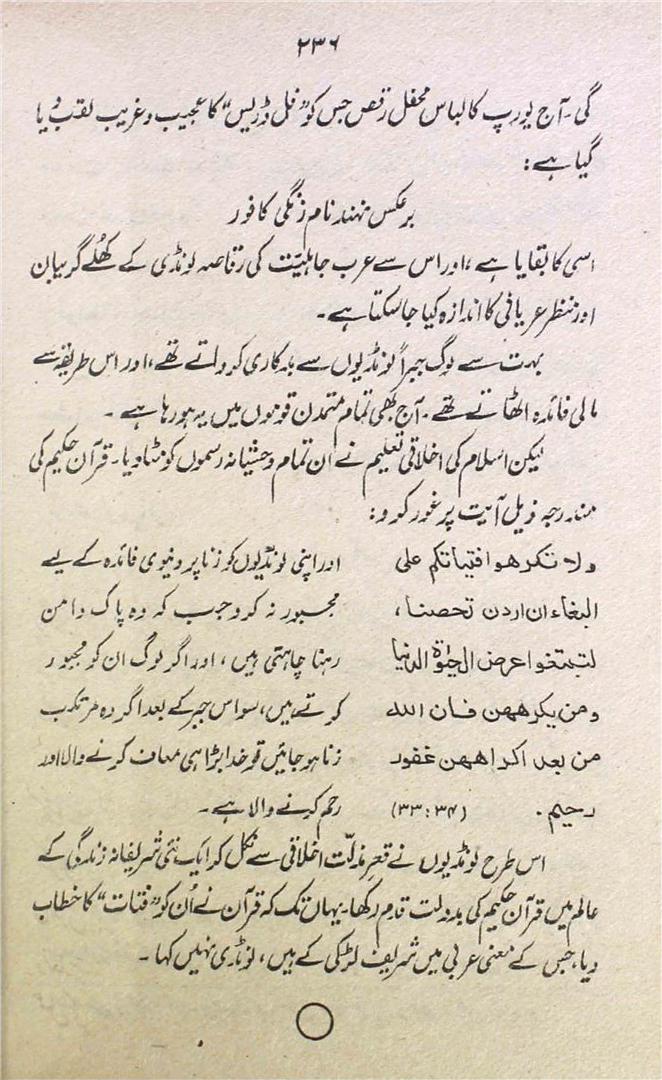 ۲۳۶
گی۔ آج یورپ کا لباس محفل رقص جس کو "فل ڈریس" کا عجیب و غریب لقب دیا
گیا ہے:
برعکس نہند نام زنگی کافور
اسی کا بقایا ہے، اور اس سے عرب جاہلیت کی رقاصہ لونڈی کے کھُلے گریبان
اور منظر عریانی کا اندازہ کیا جا سکتا ہے۔
بہت سے لوگ جبراً لونڈیوں سے بدکاری کرواتے تھے، اور اس طریقہ سے
مالی فائدہ اٹھاتے تھے۔ آج بھی تمام متمدن قوموں میں یہ ہو رہا ہے۔
لیکن اسلام کی اخلاقی تعلیم نے ان تمام وحشیانہ رسموں کو مٹا دیا۔ قرآن حکیم کی
مندرجہ ذیل آیت پر غور کرو:
ولا تکرھوا فتیاتکم علی
البغاء ان اردن تحصنا،
لتبتغوا عرض الحیٰوۃ الدنیا
ومن یکرھھن فان اللہ
من بعد اکراھھن غفور
رحیم۔ (۳۴:۳۳)
اور اپنی لونڈیوں کو زنا پر دنیوی فائدہ کے لیے
مجبور نہ کرو جب کہ وہ پاک دامن
رہنا چاہتی ہیں، اور اگر لوگ ان کو مجبور
کرتے ہیں، سو اس جبر کے بعد اگر وہ مرتکب
زنا ہو جائیں تو خدا بڑا ہی معاف کرنے والا اور
رحم کرنے والا ہے۔
اس طرح لونڈیوں نے قعر مذلّت اخلاقی سے نکل کر ایک نئی شریفانہ زندگی کے
عالم میں قرآن حکیم کی بدولت قدم رکھا۔ یہاں تک کہ قرآن نے اُن کو "فتیات" کا خطاب
دیا، جس کے معنی عربی میں شریف لڑکی کے ہیں، لونڈی نہیں کہا۔